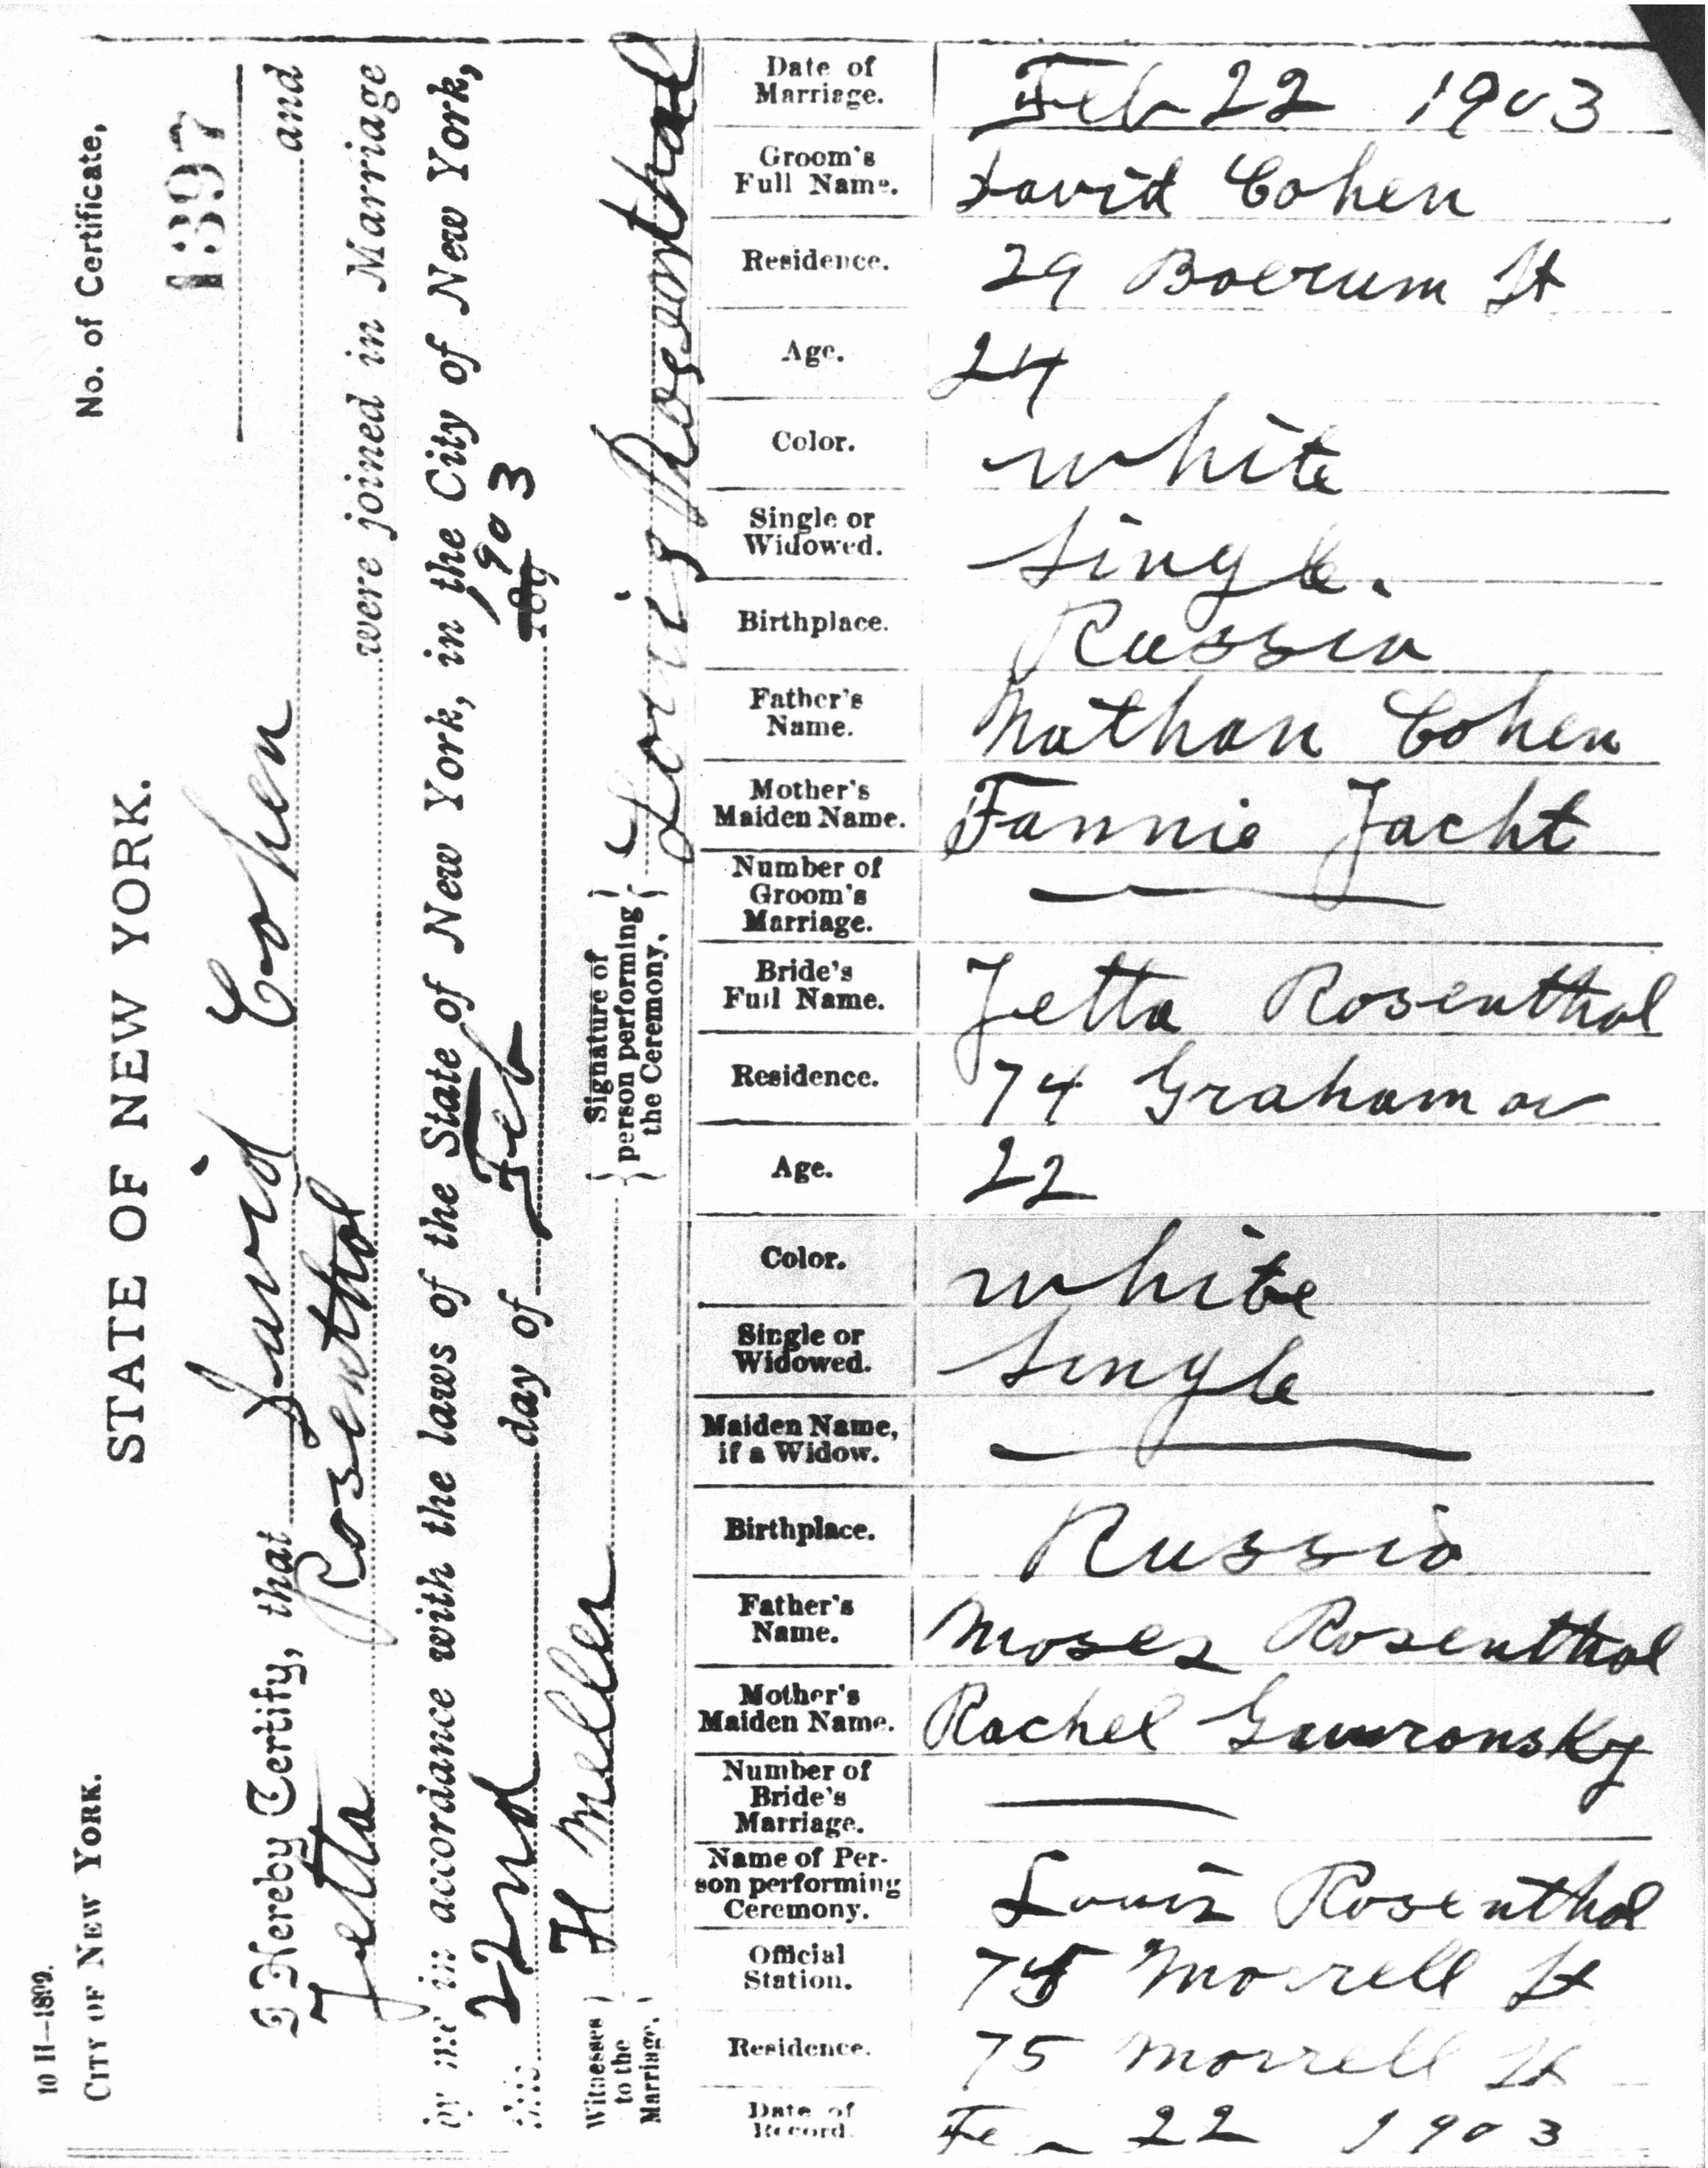 10 H—1899.
CITY OF NEW YORK.
STATE OF NEW YORK.
No. of Certificate,
1397
I Hereby Certify, that David Cohen and
Jetta Rosenthal were joined in Marriage
by me in accordance with the laws of the State of New York, in the City of New York,
this 22nd day of Feb 189 1903
Witnesses to the Marriage,
H Meller
Signature of person performing the Ceremony,
Louis Rosenthal
Date of Marriage. Feb 22 1903
Groom's Full Name. David Cohen
Residence. 29 Boerum St
Age. 24
Color. white
Single or Widowed. Single.
Birthplace. Russia
Father's Name. Nathan Cohen
Mother's Maiden Name. Fannie Jacht
Number of Groom's Marriage.
Bride's Full Name. Jetta Rosenthal
Residence. 74 Graham av
Age. 22
Color. white
Single or Widowed. Single
Maiden Name, if a Widow.
Birthplace. Russia
Father's Name. Moses Rosenthal
Mother's Maiden Name. Rachel Gawronsky
Number of Bride's Marriage.
Name of Person performing Ceremony. Louis Rosenthal
Official Station. 75 Morrell St
Residence. 75 Morrell St
Date of Record. Fe 22 1903